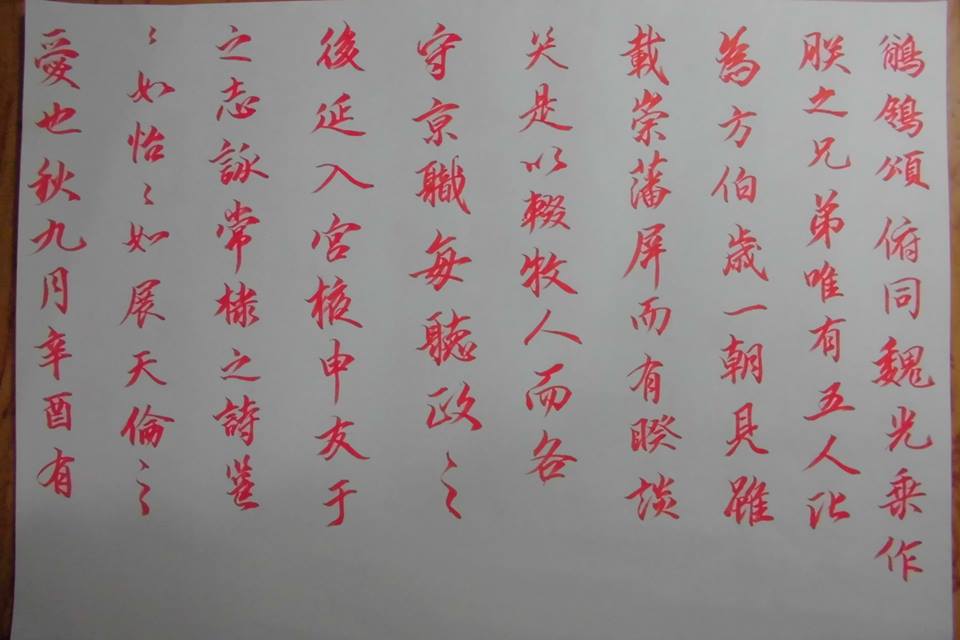 鶺鴒頌俯同魏光乗作
朕之兄弟唯有五人比
為方伯歳一朝見雖
載崇藩屏而有睽談
笑是以輟牧人而各
守京職每聽政之
後延入宮掖申友于
之志詠常棣之詩邕
〻如怡〻如展天倫之
愛也秋九月辛酉有